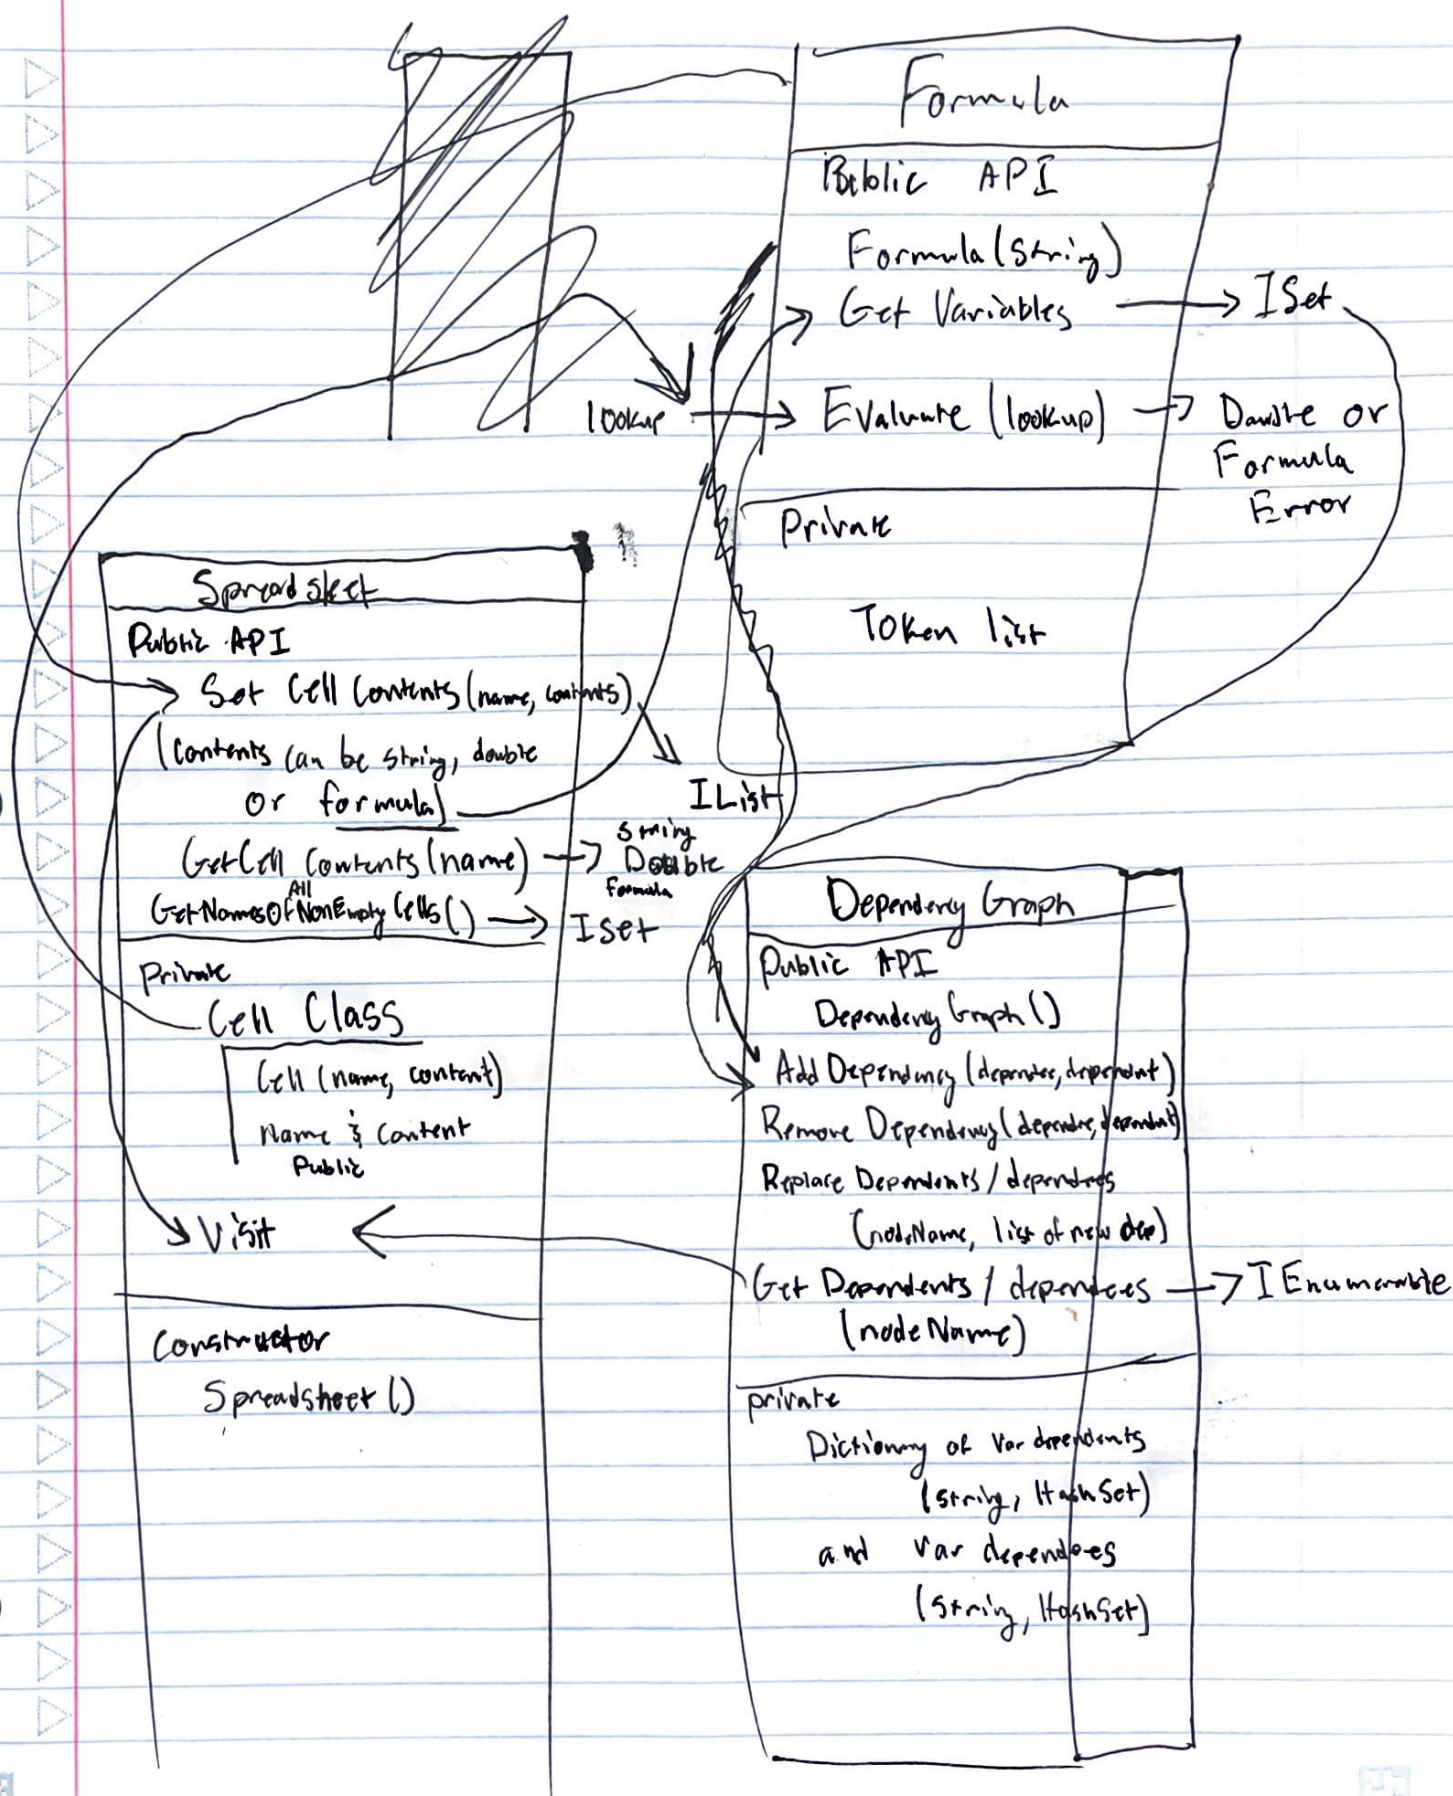 Formula
Public API
Formula (string)
Get Variables
ISet
lookup
Evaluate (lookup)
Double or
Formula
Error
Private
Token list
Spreadsheet
Public API
Set Cell Contents (name, contents)
(contents can be string, double
or formula)
IList
GetCell Contents (name)
string
Double
formula
GetNamesOfAllNonEmpty Cells ()
Iset
Private
Cell Class
Cell (name, content)
Name & Content
Public
Visit
Constructor
Spreadsheet ()
Dependency Graph
Public API
Dependency Graph ()
Add Dependency (dependee, dependent)
Remove Dependency (dependee, dependent)
Replace Dependents / dependees
(nodeName, list of new dep)
Get Dependents / dependees
IEnumerable
(nodeName)
private
Dictionary of var dependents
(string, HashSet)
and var dependees
(string, HashSet)